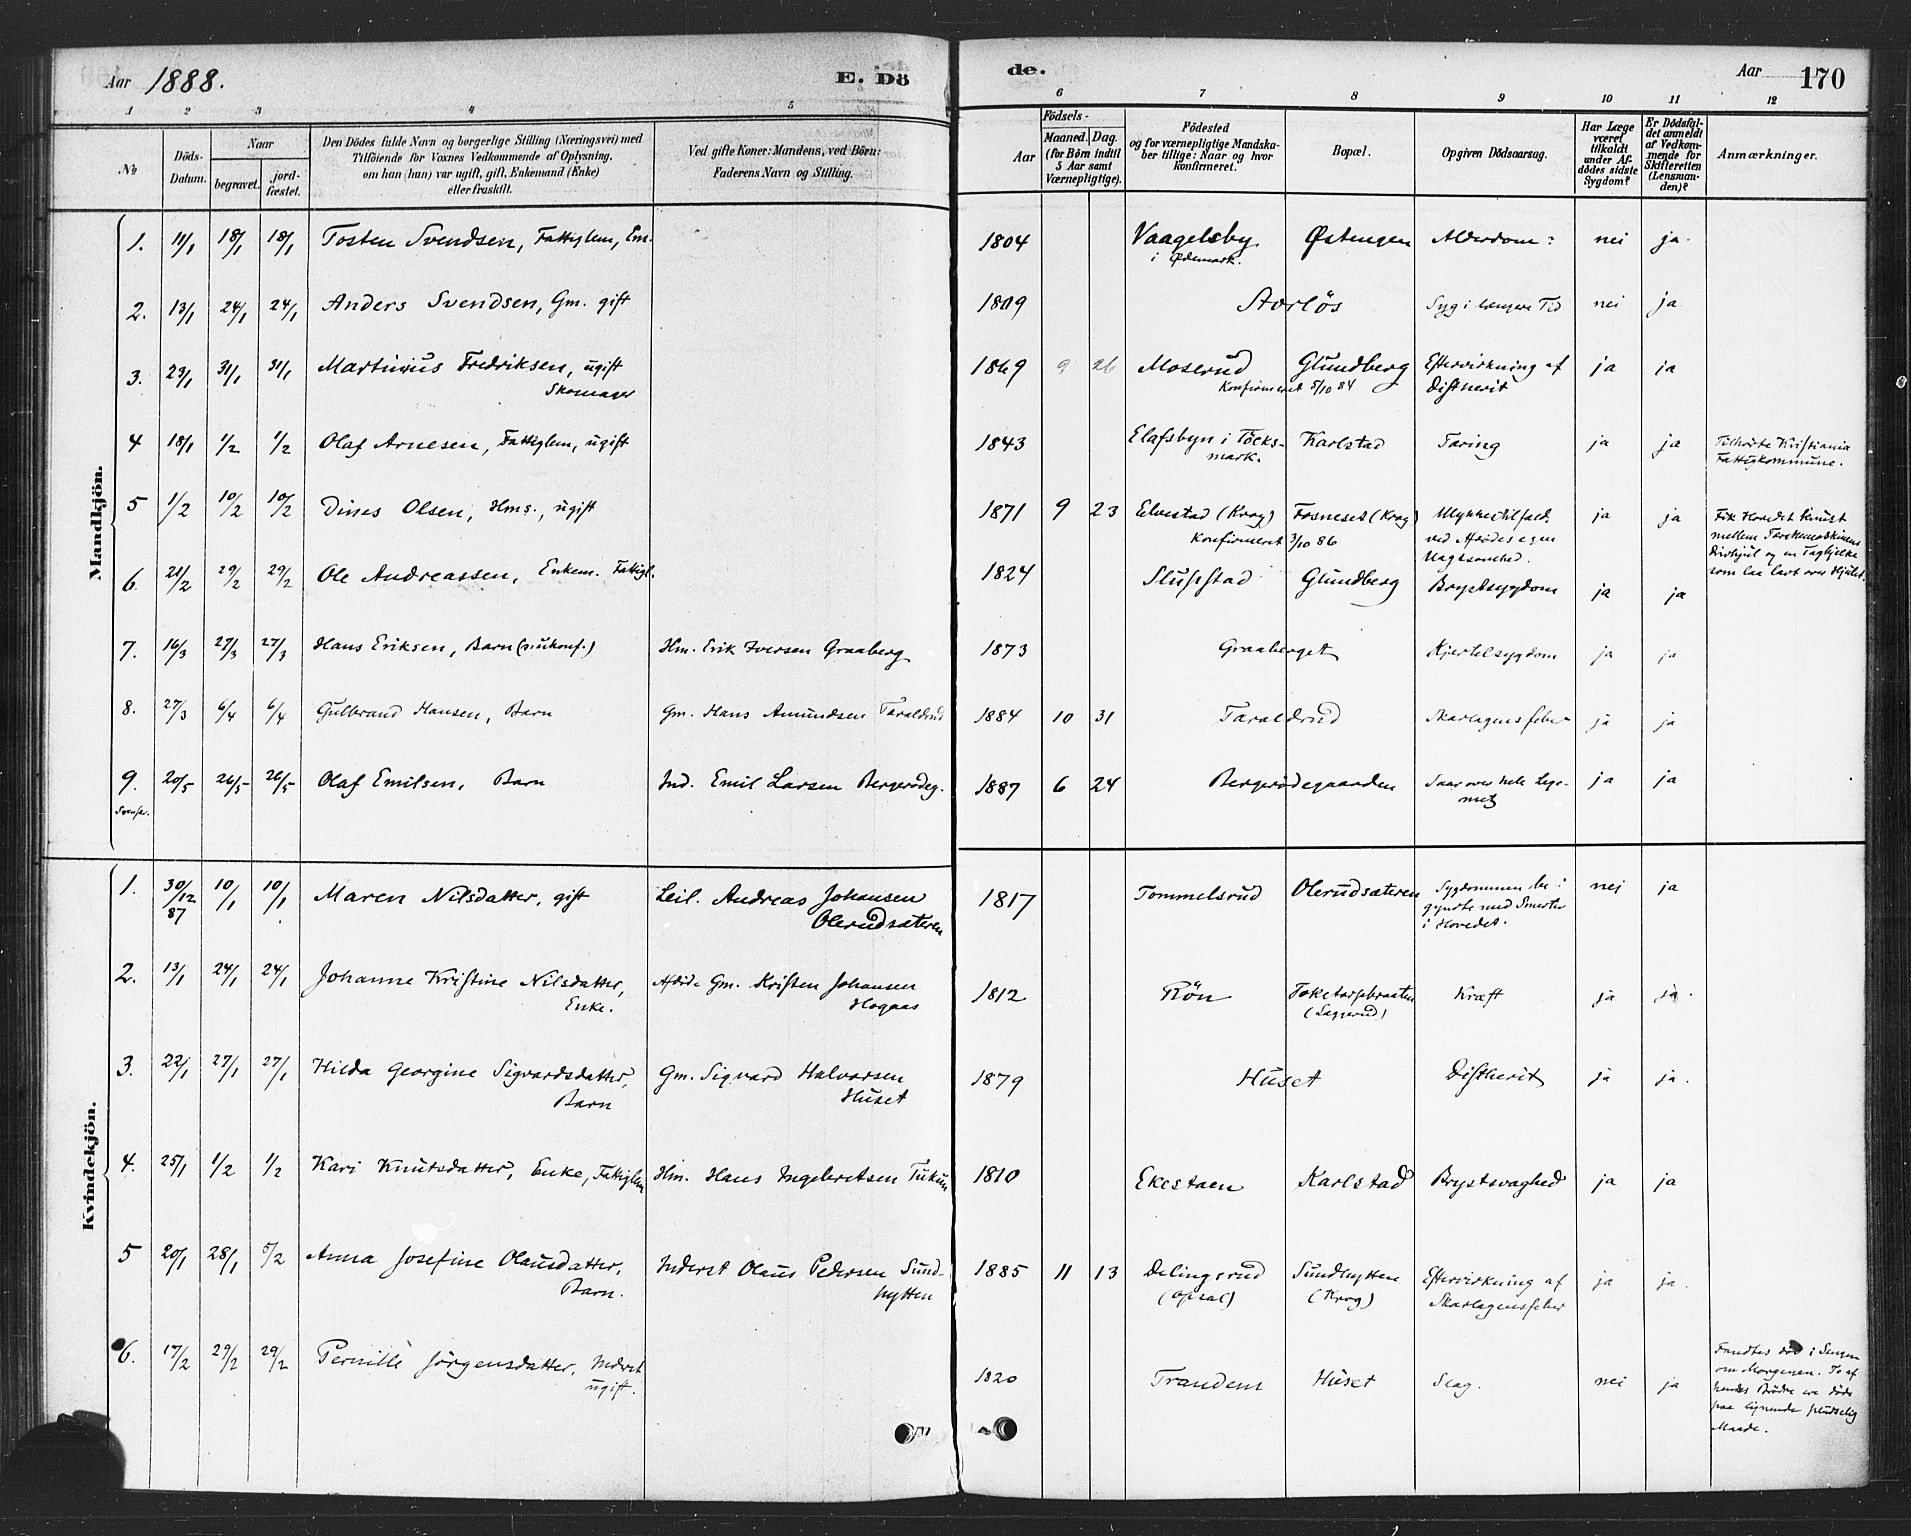 Aar 1888. E. Dö
de. Aar 170
1 2 3 4 5 6 7 8 9 10 11 12
No
Döds-Datum.
Naar
begravet.
jord-fæstet.
Den Dödes fulde Navn og borgerlige Stilling (Næringsvei) med
Tilföiende for Voxnes Vedkommende af Oplysning,
om han (hun) var ugift, gift, Enkemand (Enke)
eller fraskilt.
Ved gifte Koner: Mandens, ved Börn:
Faderens Navn og Stilling.
Födsels-
Aar
Maaned. Dag.
(for Börn indtil
5 Aar samt
Værnepligtige).
Födested
og for værnepligtige Mandska-
ber tillige: Naar og hvor
konfirmeret.
Bopæl.
Opgiven Dödsaarsag.
Har Læge
været
tilkaldt
under Af-
dödes sidste
Sygdom?
Er Dödsfal-
det anmeldt
af Vedkom-
mende for
Skifteretten
(Lensman-
den)?
Anmærkninger.
Mandkjön.
1. 11/1 18/1 18/1 Tosten Svendsen, Fattiglem, Em. 1804 Vaagelsby Østengen Alderdom nei ja.
i Ødemark.
2. 13/1 24/1 24/1 Anders Svendsen, Gm. gift 1809 Storlös Syg i længere Tid nei ja
3. 23/1 31/1 31/1 Martinius Fredriksen, ugift 1869 9 26 Moserud Glundberg Eftervirkning af ja ja
Skomager Konfirmeret 5/10 84 Diftherit
4 18/1 1/2 1/2 Olaf Arnesen, Fattiglem, ugift 1843 Elafsbyn i Töcks- Karlstad Taring ja ja Tilhørte Kristiania
mark. Fattigkommune.
5 1/2 10/2 10/2 Dines Olsen, Hms., ugift 1871 9 23 Elvestad (Krog) Fosneset (Krog) Ulykkestilfæld. ja ja Fik Hovedet knust
Konfirmeret 3/10 86 ved Afdødes egen mellem Tærskemaskinens
Uagtsomhed. Drivhjul og en Tagbjelke
6 21/2 29/2 29/2 Ole Andreassen, Enkem. Fattigl. 1824 Slupstad Glundberg Brystsygdom ja ja som laa lavt over Hjulet.
7. 16/3 27/3 27/3 Hans Eriksen, Barn (uukonf.) Hm. Erik Iversen Graaberg 1873 Graaberget Kjertelsygdom ja ja
8. 27/3 6/4 6/4 Gulbrand Hansen, Barn Gm. Hans Amundsen Taraldrud 1884 10 31 Taraldrud Skarlagensfeber ja ja
9. 20/5 26/5 26/5 Olaf Emilsen, Barn Ind. Emil Larsen Bergerødeg. 1887 6 24 Bergerødegaarden Saar over hele Lege- ja ja
met
Kvindekjön.
1. 30/12 87 10/1 10/1 Maren Nilsdatter, gift Leil. Andreas Johansen 1817 Tommelsrud Olerudsæteren Sygdommen be- nei ja
Olerudsæteren gyndte med Smerter
i Hovedet.
2. 13/1 24/1 24/1 Johanne Kristine Nilsdatter, Afdøde Gm. Kristen Johansen 1812 Rön Toketorpbraaten Kræft ja ja.
Enke. Hogaas
3. 22/1 27/1 27/1 Hilda Georgine Sigvardsdatter, Gm. Sigvard Halvorsen 1879 Huset Diftherit ja ja.
Barn Huset
4. 25/1 1/2 1/2 Kari Knutsdatter, Enke, Fattiglem Hm. Hans Ingebretsen 1810 Ekestaen Karlstad Brystsvaghed ja ja
5 20/1 28/1 5/2 Anna Josefine Olausdatter, Inderst Olaus Pedersen Sund- 1885 11 13 Delingsrud Sundhytten Eftervirkning af ja ja.
Barn. hytten (Opsal) (Krog) Skarlagensfeber
6. 17/2 29/2 29/2 Pernille Jörgensdatter, Inderst 1820 Trandem Huset Slag. nei ja
ugift.
Fandtes død i Sengen
om Morgenen. To af
hendes Brødre ere døde
paa lignende pludselig
Maade.